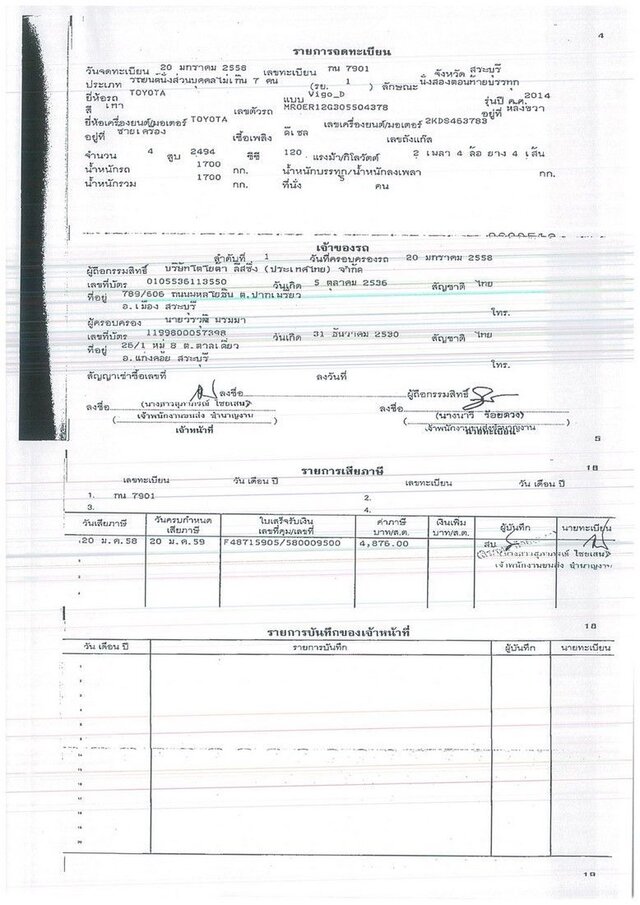 4
รายการจดทะเบียน
วันจดทะเบียน 20 มกราคม 2558 เลขทะเบียน กน 7901 จังหวัด สระบุรี
ประเภท รถยนต์นั่งส่วนบุคคลไม่เกิน 7 คน (รย. 1 ) ลักษณะ นั่งสองตอนท้ายบรรทุก
ยี่ห้อรถ TOYOTA แบบ Vigo_D รุ่นปี ค.ศ. 2014
สี เทา เลขตัวรถ MROER12G305504378 อยู่ที่ หลังขวา
ยี่ห้อเครื่องยนต์/มอเตอร์ TOYOTA เลขเครื่องยนต์/มอเตอร์ 2KDS463783
อยู่ที่ ซ้ายเครื่อง เชื้อเพลิง ดีเซล เลขถังแก๊ส
จำนวน 4 สูบ 2494 ซีซี 120 แรงม้า/กิโลวัตต์ 2 เพลา 4 ล้อ ยาง 4 เส้น
น้ำหนักรถ 1700 กก. น้ำหนักบรรทุก/น้ำหนักลงเพลา กก.
น้ำหนักรวม 1700 กก. ที่นั่ง 5 คน
เจ้าของรถ
ลำดับที่ 1 วันที่ครอบครองรถ 20 มกราคม 2558
ผู้ถือกรรมสิทธิ์ บริษัทโตโยต้า ลีสซิ่ง (ประเทศไทย) จำกัด
เลขที่บัตร 0105536113550 วันเกิด 5 ตุลาคม 2536 สัญชาติ ไทย
ที่อยู่ 789/606 ถนนพหลโยธิน ต.ปากเพรียว
อ.เมือง สระบุรี โทร.
ผู้ครอบครอง
เลขที่บัตร 1199800057398 วันเกิด 31 ธันวาคม 2530 สัญชาติ ไทย
ที่อยู่ 26/1 หมู่ 8 ต.ตาลเดี่ยว
อ.แก่งคอย สระบุรี โทร.
สัญญาเช่าซื้อเลขที่ ลงวันที่
ลงชื่อ ผู้ถือกรรมสิทธิ์
ลงชื่อ ลงชื่อ
(นางสาวสุภาภรณ์ ไชยเสน) (นางนารี ร้อยดวง)
เจ้าพนักงานขนส่ง ชำนาญงาน เจ้าพนักงานขนส่งชำนาญงาน
เจ้าหน้าที่ นายทะเบียน
5
รายการเสียภาษี 16
เลขทะเบียน วัน เดือน ปี เลขทะเบียน วัน เดือน ปี
1. กน 7901 2.
3. 4.
วันเสียภาษี วันครบกำหนดเสียภาษี ใบเสร็จรับเงิน เลขที่คุม/เลขที่ ค่าภาษี บาท/ส.ต. เงินเพิ่ม บาท/ส.ต. ผู้บันทึก นายทะเบียน
20 ม.ค.58 20 ม.ค.59 F48715905/580009500 4,876.00 สบ
(นางสาวสุภาภรณ์ ไชยเสน)
เจ้าพนักงานขนส่ง ชำนาญงาน
รายการบันทึกของเจ้าหน้าที่ 18
วัน เดือน ปี รายการบันทึก ผู้บันทึก นายทะเบียน
19